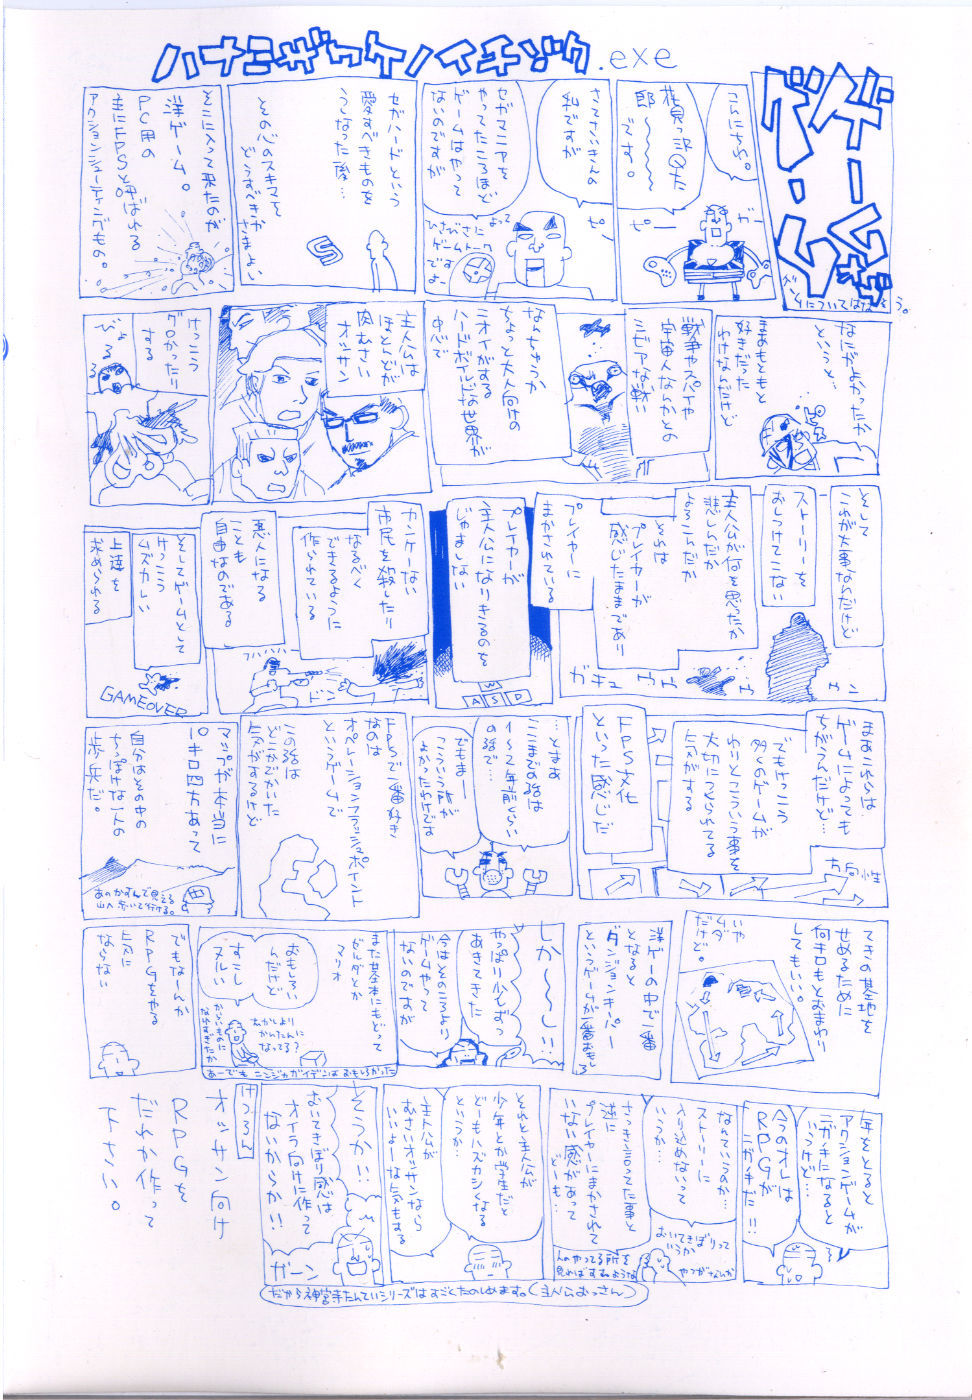 ハナミザワケノイチゾク.exe
ゲームなぞ
ゲームについてはなそう。
こんにちわ。
花見沢Q太
郎〜〜〜〜
です。
ガー
ピー
さてさいきんの
私ですが
ピー
セガマニアを
やってたころほど
ゲームはやって
ないのですが
よって
ひさびさに
ゲームトーク
ですよ
セガハードという
愛すべきものを
うしなった後…
その心のスキマを
どうすべきか
さまよい
そこに入って来たのが
洋ゲーム。
PC用の
主にFPSと呼ばれる
アクションシューティングもの。
なにがよかったか
というと…
まあもともと
好きだった
わけなんだけど
戦争やスパイや
宇宙人なんかとの
シビアな戦い
なんちゅうか
ちょっと大人向けの
ニオイがする
ハードボイルドな世界が
中心で
主人公は
ほとんどが
肉むさい
オッサン
けっこう
グロかったり
する
びょる
そして
これが大事なんだけど
ストーリーを
おしつけてこない
主人公が何を思ったか
悲しんだか
よろこんだか
それは
プレイヤーが
感じたままであり
ガキュ
プレイヤーに
まかされている
プレイヤーが
主人公になりきるのを
じゃましない
W
A S D
カンケーない
市民を殺したり
なるべく
できるように
作られている
悪人になる
ことも
自由なのである
ババババ
ドン
そしてゲームとして
けっこう
ムズカしい
上達を
求められる
GAMEOVER
まあこれらは
ゲームによっても
ちがうんだけど…
でもけっこう
多くのゲームが
わりとこういう事を
大切につくられてる
気がする
方向性
FPS文化
といった感じだ
…とまあ
ここまでの話は
1〜2年前くらい
の話で…
でもまー
こういう所が
よかったわけです
FPSで一番好き
なのは
オペレーションフラッシュポイント
というゲームで
この話は
どこかでかいた
気がするけど
マップが本当に
10キロ四方あって
自分はその中の
ちっぽけな一人の
歩兵だ。
あのかすんで見える
山へ歩いて行ける。
てきの基地を
せめるために
何キロもとおまわり
してもいい。
いや
ムダ
だけど。
洋ゲーの中で一番
となると
ダンジョンキーパー
というゲームが一番おもしろ
しか〜〜し!!
やっぱり少しずつ
あきてきた
今はそのころより
ゲームやって
ないのですが
また基本にもどって
ゼルダとか
マリオ
おもしろい
んだけど
すこし
ヌルい
むかしより
かんたんに
なってる?
からいものに
なれすぎたか
あーでも ニンジャガイデンは おもしろかった
でもなーんか
RPGをやる
気に
ならない
年をとると
アクションゲームが
ニガテになると
いうけど…
今のオレは
RPGが
ニガテだ!!
なんていうのか…
ストーリーに
入り込めないって
いうか…
さっき言ってた事と
逆に
プレイヤーにまかされて
いない感があって
どーも…
おいてきぼりって
いうか
人のやってる所を
見ればすむような
やつがなんか
それと主人公が
少年とか学生だと
どーもハズカシくなる
というか…
主人公が
むさいオッサンなら
いいよーな気もする
そうか!!
おいてきぼり感は
オイラ向けに作って
ないからか!!
ガーン
だから神宮寺たんていシリーズはすごくたのしめます。(主人公おっさん)
けつろん
オッサン向け
RPGを
だれか作って
下さい。